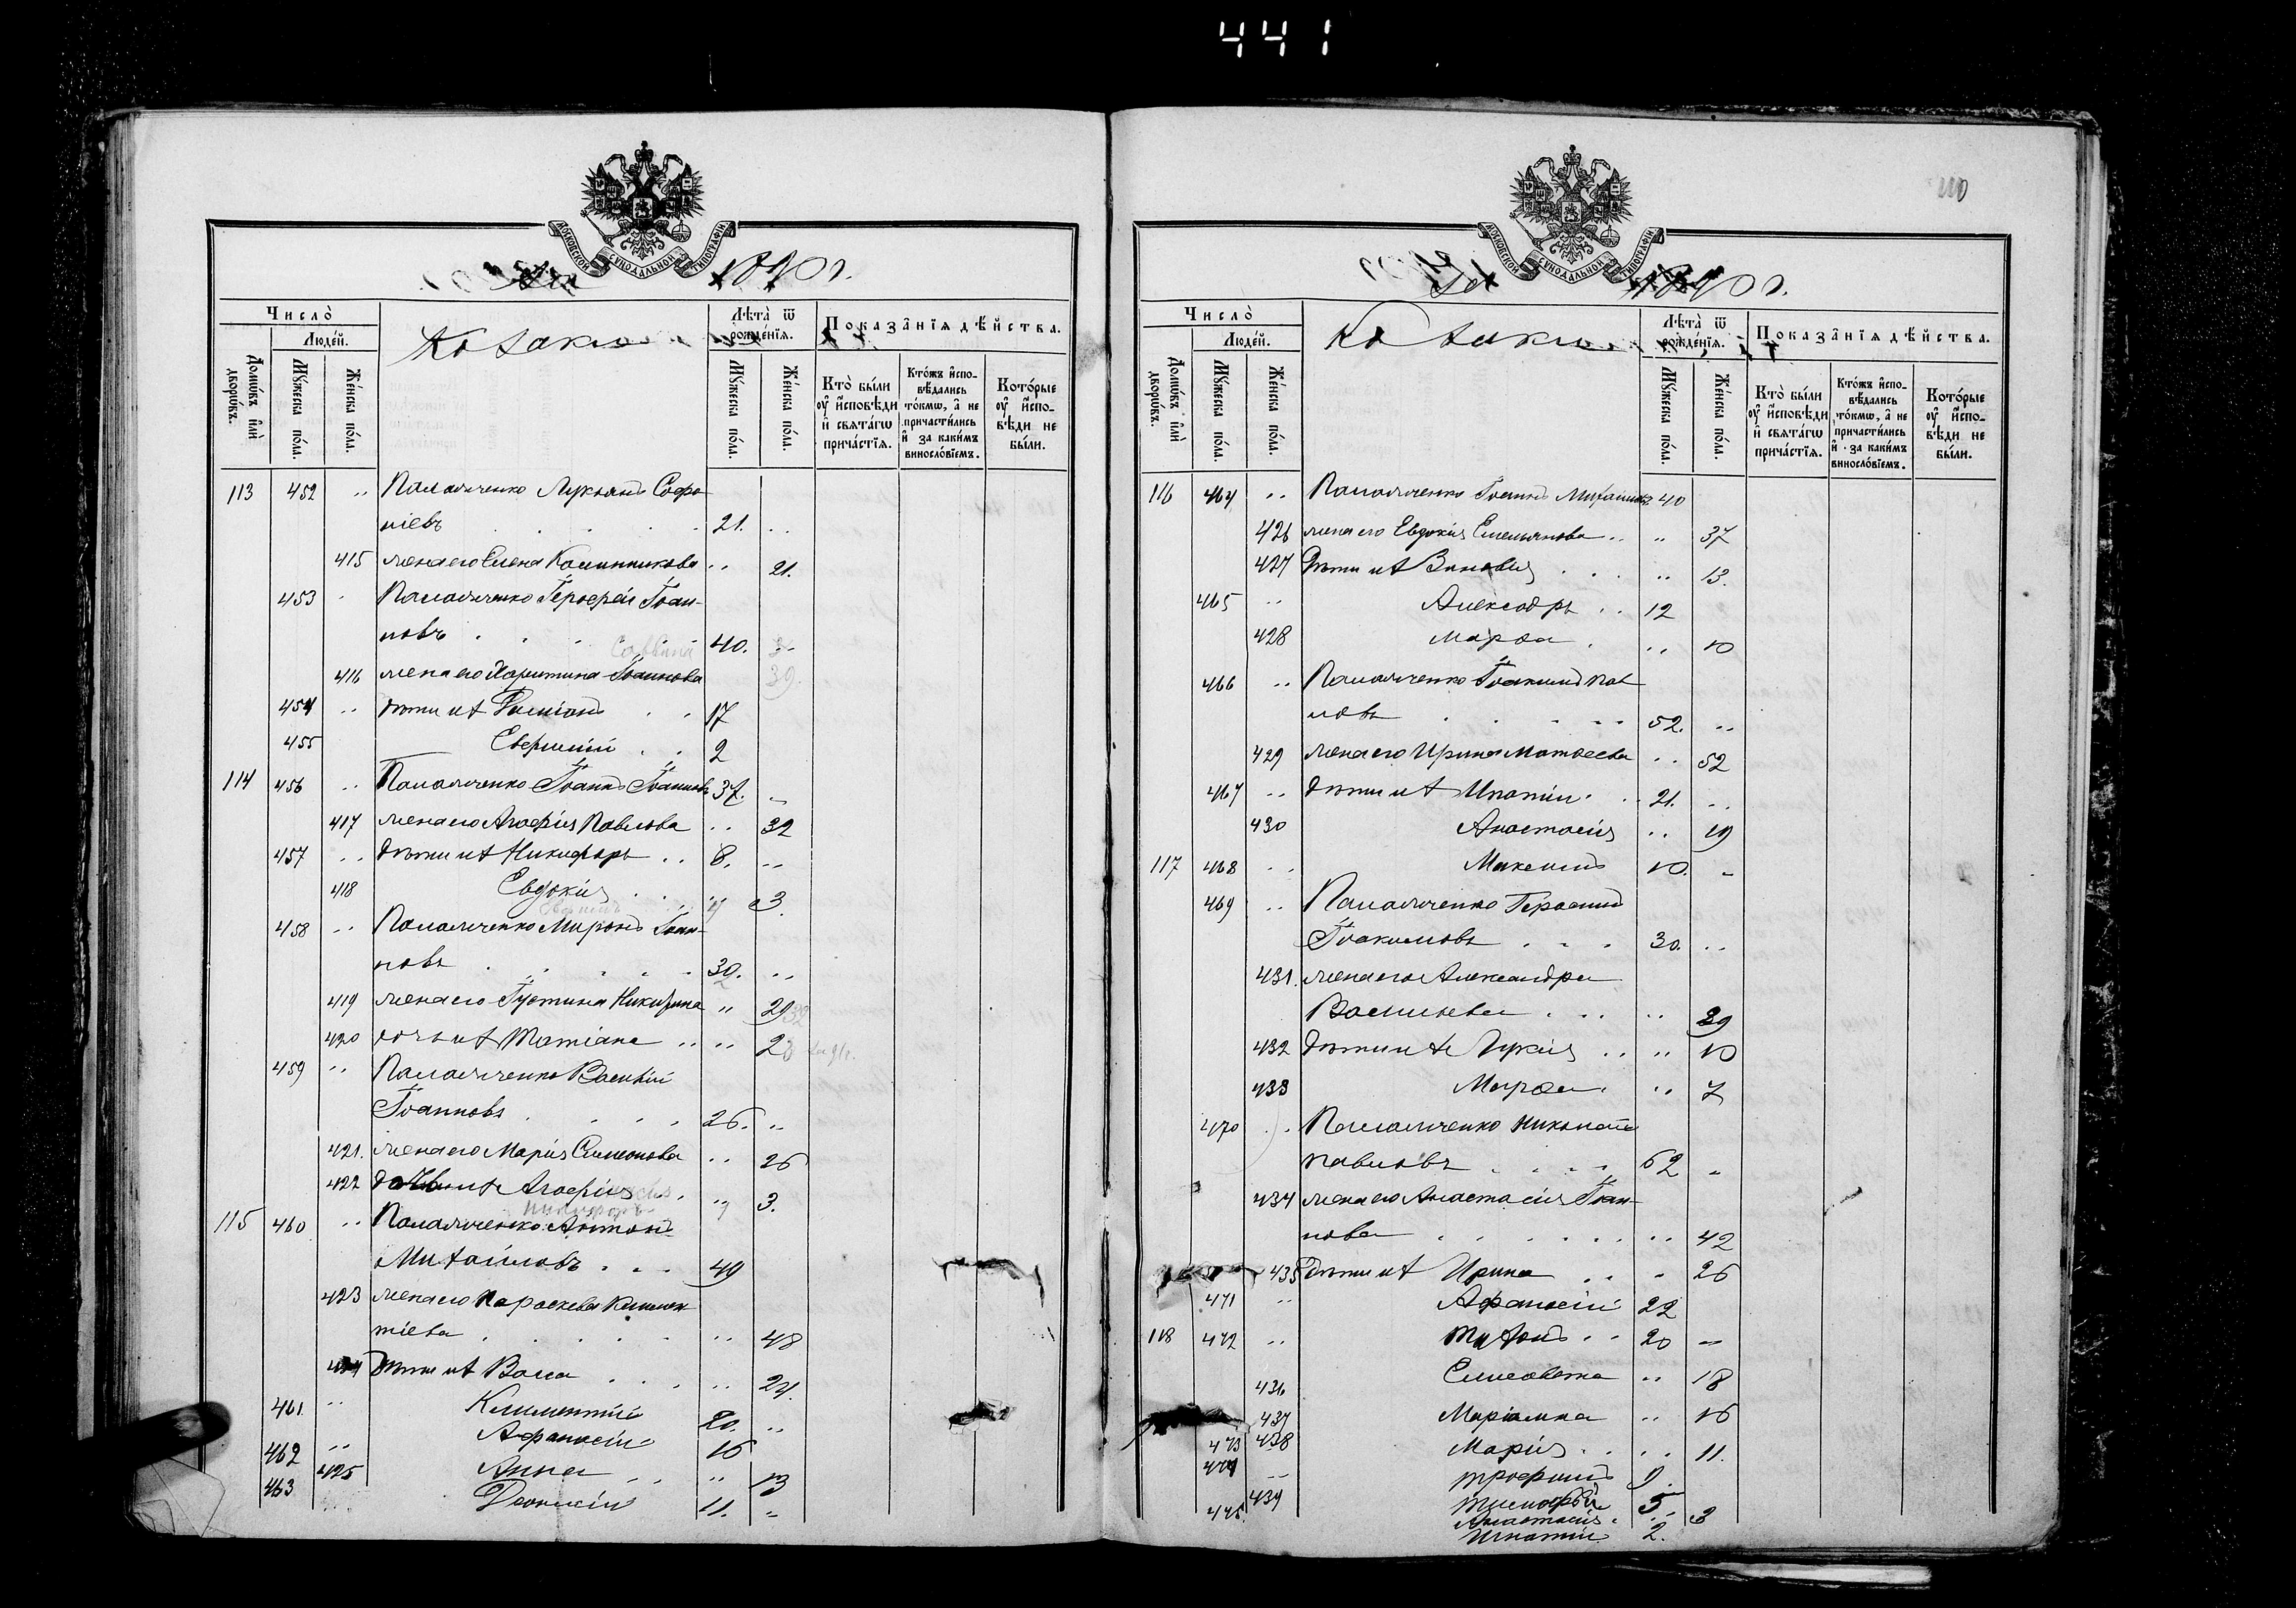 441
110
МОСКОВСКОЙ СѴНОДАЛЬНОЙ ТИПОГРАФІИ
1890 г.
Число̀
Люде́й.
Домѡ́въ и҆лѝ дворѡ́въ.
Мꙋ́жеска по́ла.
Же́нска по́ла.
Козаки
Лѣ́та ѿ рожде́нїѧ.
Мꙋ́жеска по́ла.
Же́нска по́ла.
Показа̑нїѧ дѣ́йства.
Кто̀ бы́ли ᲂу҆ и҆сповѣ́ди и҆ свѧта́гѡ прича́стїѧ.
Кто́жъ и҆сповѣ́дались то́кмѡ, а҆ не причасти́лись и҆ за каки́мъ виносло́вїемъ.
Кото́рые ᲂу҆ и҆сповѣ́ди не бы́ли.
113 452 " Паламаченко Лукьянъ Софро
ніевъ . . . 21. "
415 жена его Елена Калинникова " 21.
453 " Паламаченко Іерофей Іоан-
новъ . . . 40.
Саввина
416 жена его Харитина Іоаннова 39.
454 " дѣти ихъ Даміанъ . . 17
455 Евфимій . . 2
114 456 " Паламаченко Іоаннъ Іоанновъ 37. "
417 жена его Агафія Павлова " 32
457 " дѣти ихъ Никифоръ . . 8. "
418 Евдокія . . . " 3.
458 " Паламаченко Миронъ Іоан-
новъ . . . 30. "
419 жена его Іустина Никитина " 29
420 дочь ихъ Татіана " " 2
459 " Паламаченко Василій
Іоанновъ . . . 26. "
421. жена его Марія Симеонова " 26
422 дочь ихъ Агафія . " 3.
115 460 " Паламаченко Антонъ
Михайловъ . . . 49
423 жена его Параскева Климен
тіева . . . " 48
424 дѣти ихъ Васса . . . " 24.
461 " Климентій 20. "
462 " Афанасій 16
425 Анна . . " 13
463 Діонисій 11. "
МОСКОВСКОЙ СѴНОДАЛЬНОЙ ТИПОГРАФІИ
За 1890 г.
Число̀
Люде́й.
Домѡ́въ и҆лѝ дворѡ́въ.
Мꙋ́жеска по́ла.
Же́нска по́ла.
Козаки
Лѣ́та ѿ рожде́нїѧ.
Мꙋ́жеска по́ла.
Же́нска по́ла.
Показа̑нїѧ дѣ́йства.
Кто̀ бы́ли ᲂу҆ и҆сповѣ́ди и҆ свѧта́гѡ прича́стїѧ.
Кто́жъ и҆сповѣ́дались то́кмѡ, а҆ не причасти́лись и҆ за каки́мъ виносло́вїемъ.
Кото́рые ᲂу҆ и҆сповѣ́ди не бы́ли.
116 464 " Паламаченко Іоаннъ Михайловъ 40
426 жена его Евдокія Емельянова " " 37
427 Дѣти ихъ Зиновія . . . " 13.
465 " Александръ . . 12
428 Марѳа . " 10
466 " Паламаченко Іоакимъ Пав
ловъ . . . 52. "
429 жена его Ирина Матѳеева " 52
467 " дѣти ихъ Игнатій . . 21. "
430 Анастасія " 19
117 468 " Максимъ 10. "
469 " Паламаченко Герасимъ
Іоакимовъ . . . 30. "
431. жена его Александра
Васильева . . . " 29
432 дѣти ихъ Лукія . . " 10
433 Марѳа . " 7
470 " Паламаченко Николай
Павловъ . . . 62 "
434 жена его Анастасія Іоан-
нова . . . " 42
435 Дѣти ихъ Ирина . . " 26
471 " Афанасій 22
118 472 " Тихонъ . . 20 "
436 Елисавета " 18
437 Маріамна " 16
473 438 Марія . . " 11.
474 " Трофимъ 9.
439 Тимофей 5.
475. Анастасія . " 3
Игнатій 2.